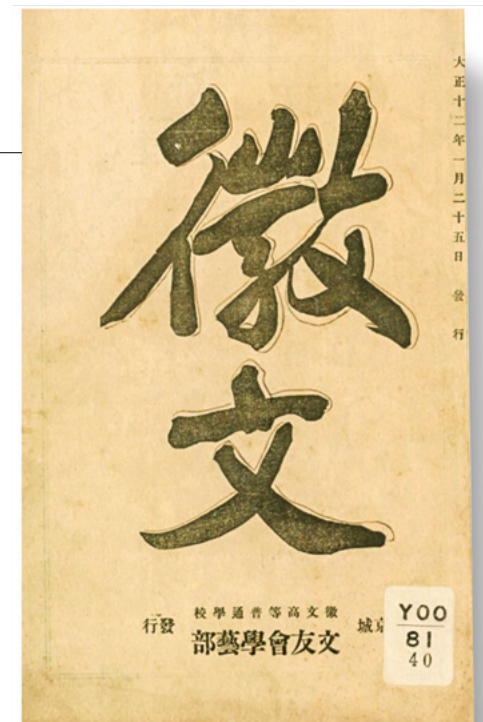 大正十二年一月二十五日 發行
徽文
徽文高等普通學校
京城 文友會學藝部 發行
Y00
81
40